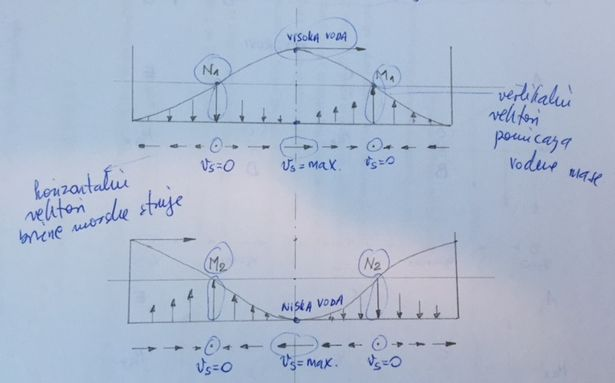 VISOKA VODA
N1
M1
vertikalni
vektori
pomicanja
vodene mase
vs=0
vs=max.
vs=0
horizontalni
vektori
brzine morske struje
M2
N2
NISKA VODA
vs=0
vs=max.
vs=0